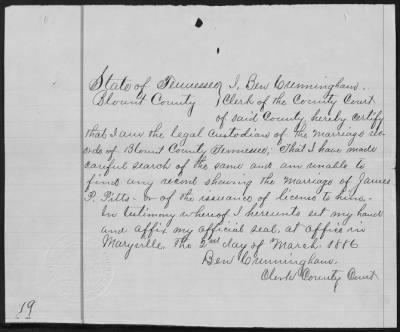 State of Tennessee } I, Ben Cunningham.
Blount County } Clerk of the County Court
of said County hereby certify
that I am the legal Custodian of the Marriage re-
cords of Blount County Tennessee; That I have made
careful search of the same and am unable to
find any record showing the Marriage of James
P. Pitts - or of the issuance of license to him.
In testimony whereof I hereunto set my hand
and affix my official seal, at office in
Maryville. The 2nd day of March 1886
Ben Cunningham.
Clerk County Court
19